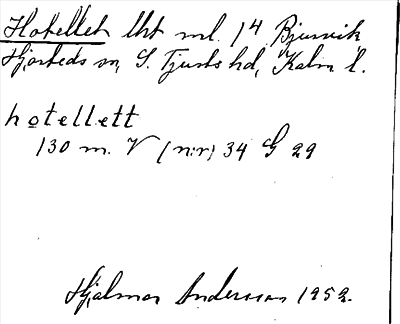 Hotellet lht ml. 1⁴ Bjursvik
Hjorteds sn, S. Tjusts hd, Kalm l.
hotellett
130 m. V (n:r) 34 G 29
Hjalmar Andersson 1952.